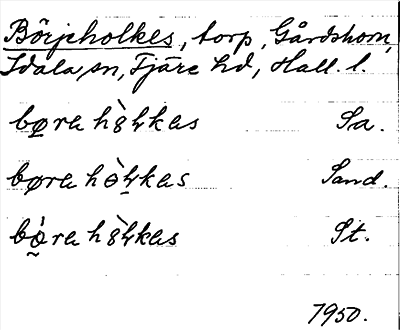 Börjeholkes, torp, Gårdshorn,
Idala sn, Fjäre hd, Hall. l.
bø̠ra hȣ̀ɫkas Sa.
børa hòɫkas Sand.
bø̀ra hȣ̀ɫkas St.
1950.